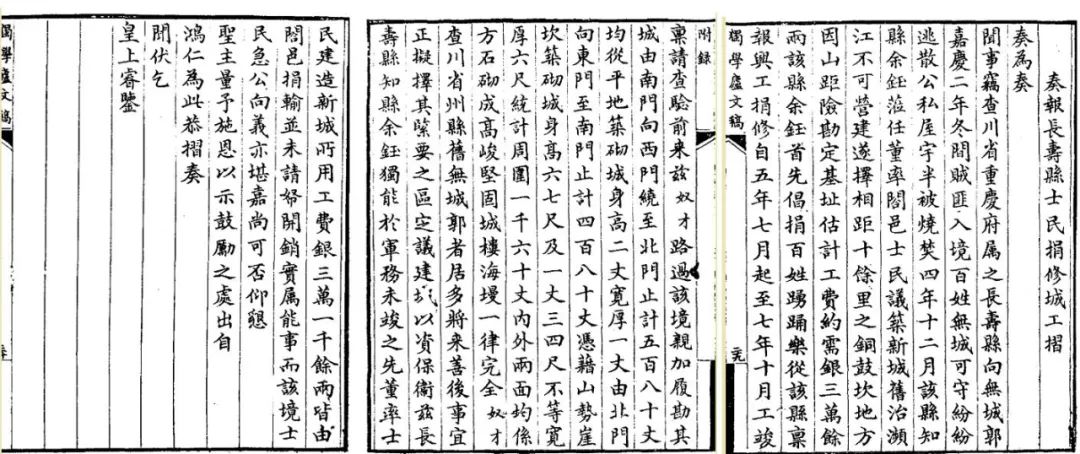 奏報長壽縣士民捐修城工摺
奏為奏
聞事竊查川省重慶府属之長壽縣向無城郭
嘉慶二年冬間賊匪入境百姓無城可守紛紛
逃散公私屋宇半被燒焚四年十二月該縣知
縣余鈺蒞任董率閤邑士民議築新城舊治瀕
江不可營建遂擇相距十餘里之銅鼓坎地方
因山距險勘定基址估計工費約需銀三萬餘
兩該縣余鈺首先倡捐百姓踴踊樂從該縣稟
報興工捐修自五年七月起至七年十月工竣
獨學廬文稿
二十九
附录
稟請查驗前来兹奴才路過該境親加履勘其
城由南門向西門繞至北門止計五百八十丈
均從平地築砌城身高二丈寬厚一丈由北門
向東門至南門止計四百八十丈憑藉山勢崖
坎築砌城身高六七尺及一丈三四尺不等寬
厚六尺統計周圍一千六十丈內外兩面均係
方石砌成高峻堅固城樓海墁一律完全奴才
查川省州縣舊無城郭者居多將来善後事宜
正擬擇其緊要之區定議建城以資保衛兹長
壽縣知縣余鈺獨能於軍務未竣之先董率士
民建造新城所用工費銀三萬一千餘兩皆由
閤邑捐輸並未請帑開銷實属能事而該境士
民急公向義亦堪嘉尚可否仰懇
聖主量予施恩以示鼓勵之處出自
鴻仁為此恭摺奏
聞伏乞
皇上睿鑒
獨學廬文稿